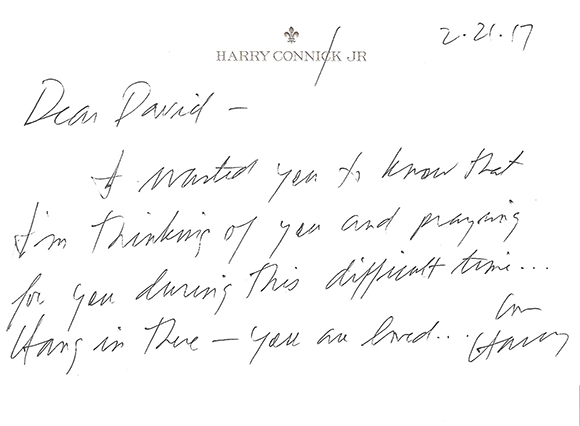 2.21.17
HARRY CONNICK JR
Dear David —
I wanted you to know that
I'm thinking of you and praying
for you during this difficult time...
Hang in there — you are loved...
Harry